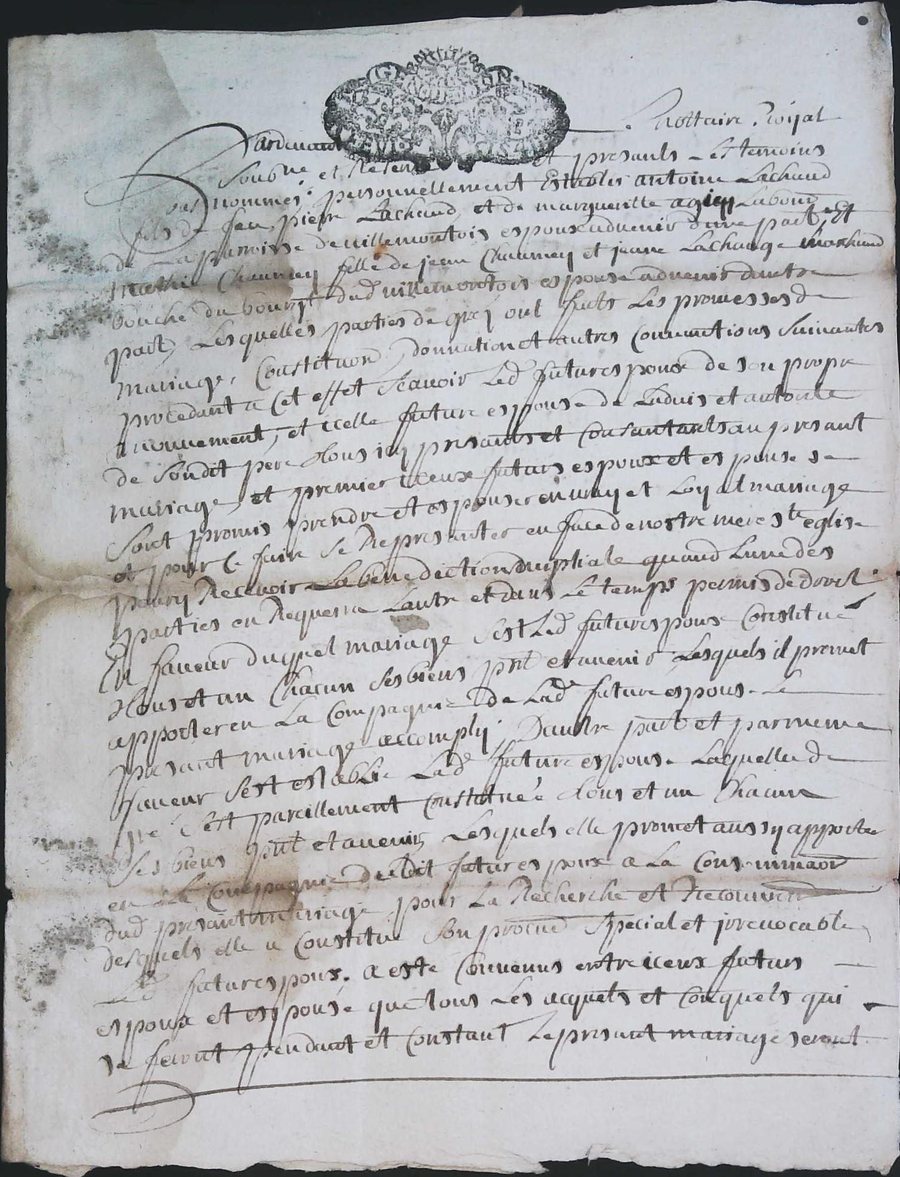 Pardevant Nottaire Royal
Soubne et Reser et presants Les temoins
bas nommés personnellement Establis antoine Lachaud
fils de feu pierre Lachaud et de margueritte Labour
de La paroisse de villemontois espoux advenir dune part Et
fille de jean Chaumey et jeane Lachauge marchand
bouché du bourgt dud villemontois espouse advenir dautre
part, Lesquelles parties de gréy ont faits Les promesses de
mariage, Constituon, donnation et autres Conventions suivantes
procedant a Cet effet Scavoir Led futur espoux de son propre
mouvement, et icelle future espouse de Ladvis et autorité
de Sondit père tous icy presants et Consantants au presant
mariage, et premier iceux futurs espoux et espouse se
Sont promis prendre et espouser en vray et Loyal mariage
et pour Ce faire Se Representer en face de nostre mere ste Eglise
pour y Recevoir La benediction nuptiale quand Lune des
parties en Requerra Lautre et dans Le temps permis de droit
En faveur duquel mariage Sest Led futur espoux Constitué
tous et un Chacun Ses biens pnt et avenir Lesquels il promet
apporter en La Compagnie de Lad future espouse Le
presant mariage accomply, Dautre part et par meme
faveur Sest establie Lad future espouse Laquelle de
gré Cest pareillement Constituée tous et un Chacun
Ses biens pnt et avenir Lesquels elle promet aussy apporter
en La Compagnie dudit futur espoux a La Consommaon
dud presant mariage pour La Recherche et Recouvremt
desquels elle a Constitué Son procur Special et irrevocable
Led futur espoux. a esté Convenus entre iceux futurs
espoux et espouse que tous Les acquets et Conquets qui
se feront pendant et Constant Le presant mariage seront